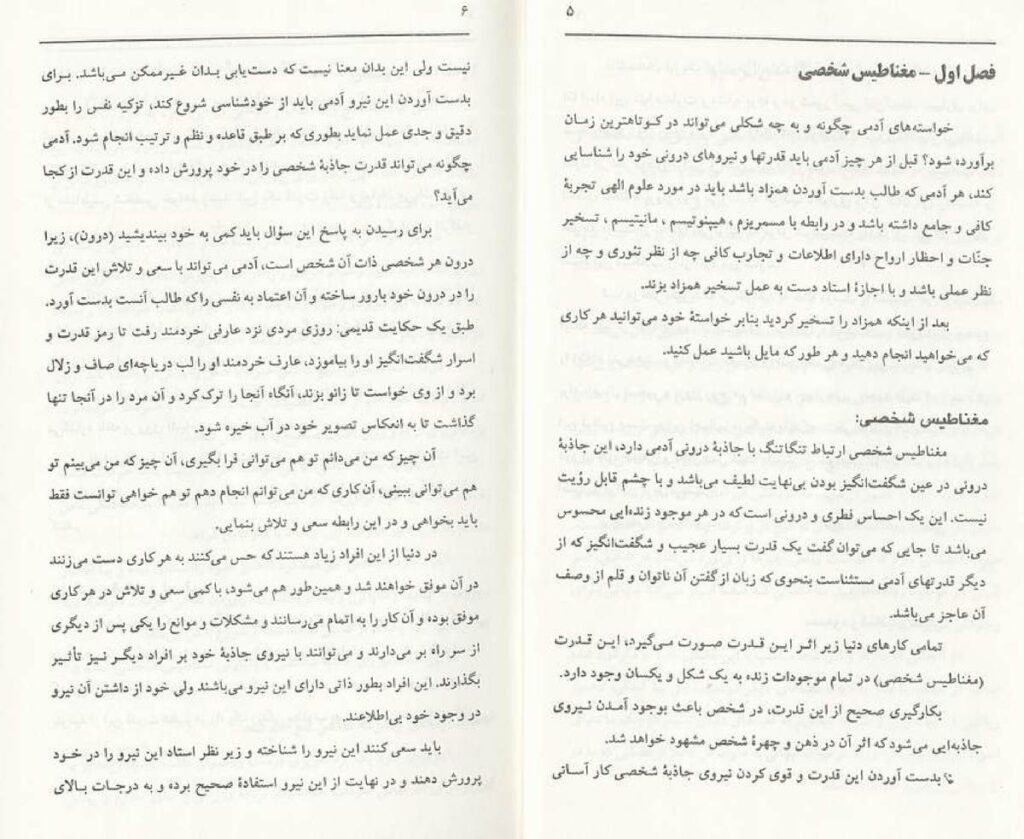 ۵
فصل اول - مغناطیس شخصی
خواسته‌های آدمی چگونه و به چه شکلی می‌تواند در کوتاهترین زمان
برآورده شود؟ قبل از هر چیز آدمی باید قدرتها و نیروهای درونی خود را شناسایی
کند، هر آدمی که طالب بدست آوردن همزاد باشد باید در مورد علوم الهی تجربهٔ
کافی و جامع داشته باشد و در رابطه با مسمریزم ، هیپنوتیسم ، مانیتیسم ، تسخیر
جنّات و احظار ارواح دارای اطلاعات و تجارب کافی چه از نظر تئوری و چه از
نظر عملی باشد و با اجازهٔ استاد دست به عمل تسخیر همزاد بزند.
بعد از اینکه همزاد را تسخیر کردید بنابر خواستهٔ خود می‌توانید هر کاری
که می‌خواهید انجام دهید و هر طور که مایل باشید عمل کنید.
مغناطیس شخصی:
مغناطیس شخصی ارتباط تنگاتنگ با جاذبهٔ درونی آدمی دارد، این جاذبهٔ
درونی در عین شگفت‌انگیز بودن بی‌نهایت لطیف می‌باشد و با چشم قابل رؤیت
نیست. این یک احساس فطری و درونی است که در هر موجود زنده‌ایی محسوس
می‌باشد تا جایی که می‌توان گفت یک قدرت بسیار عجیب و شگفت‌انگیز که از
دیگر قدرتهای آدمی مستثناست بنحوی که زبان از گفتن آن ناتوان و قلم از وصف
آن عاجز می‌باشد.
تمامی کارهای دنیا زیر اثر این قدرت صورت می‌گیرد، این قدرت
(مغناطیس شخصی) در تمام موجودات زنده به یک شکل و یکسان وجود دارد.
بکارگیری صحیح از این قدرت، در شخص باعث بوجود آمدن نیروی
جاذبه‌ایی می‌شود که اثر آن در ذهن و چهرهٔ شخص مشهود خواهد شد.
بدست آوردن این قدرت و قوی کردن نیروی جاذبهٔ شخصی کار آسانی
۶
نیست ولی این بدان معنا نیست که دست‌یابی بدان غیرممکن می‌باشد. برای
بدست آوردن این نیرو آدمی باید از خودشناسی شروع کند، تزکیه نفس را بطور
دقیق و جدی عمل نماید بطوری که بر طبق قاعده و نظم و ترتیب انجام شود. آدمی
چگونه می‌تواند قدرت جاذبهٔ شخصی را در خود پرورش داده و این قدرت از کجا
می‌آید؟
برای رسیدن به پاسخ این سؤال باید کمی به خود بیندیشید (درون)، زیرا
درون هر شخصی ذات آن شخص است، آدمی می‌تواند با سعی و تلاش این قدرت
را در درون خود بارور ساخته و آن اعتماد به نفسی را که طالب آنست بدست آورد.
طبق یک حکایت قدیمی: روزی مردی نزد عارفی خردمند رفت تا رمز قدرت و
اسرار شگفت‌انگیز او را بیاموزد، عارف خردمند او را لب دریاچه‌ای صاف و زلال
برد و از وی خواست تا زانو بزند، آنگاه آنجا را ترک کرد و آن مرد را در آنجا تنها
گذاشت تا به انعکاس تصویر خود در آب خیره شود.
آن چیز که من می‌دانم تو هم می‌توانی فرا بگیری، آن چیز که من می‌بینم تو
هم می‌توانی ببینی، آن کاری که من می‌توانم انجام دهم تو هم خواهی توانست فقط
باید بخواهی و در این رابطه سعی و تلاش بنمایی.
در دنیا از این افراد زیاد هستند که حس می‌کنند به هر کاری دست می‌زنند
در آن موفق خواهند شد و همین‌طور هم می‌شود، با کمی سعی و تلاش در هر کاری
موفق بوده و آن کار را به اتمام می‌رسانند و مشکلات و موانع را یکی پس از دیگری
از سر راه بر می‌دارند و می‌توانند با نیروی جاذبهٔ خود بر افراد دیگر نیز تأثیر
بگذارند. این افراد بطور ذاتی دارای این نیرو می‌باشند ولی خود از داشتن آن نیرو
در وجود خود بی‌اطلاعند.
باید سعی کنند این نیرو را شناخته و زیر نظر استاد این نیرو را در خود
پرورش دهند و در نهایت از این نیرو استفادهٔ صحیح برده و به درجات بالای